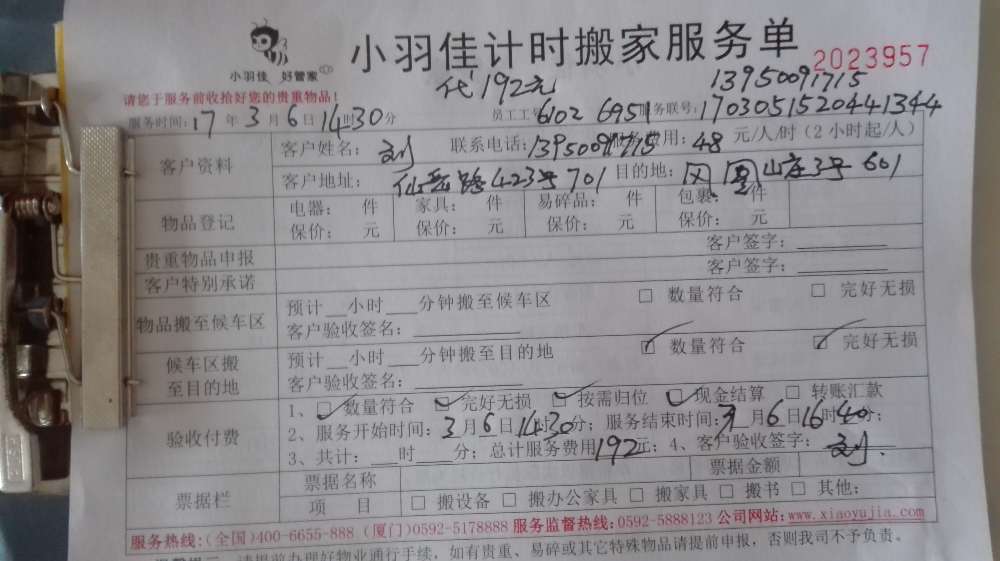 小羽佳 好管家
小羽佳计时搬家服务单
2023957
代 192元
13950091715
请您于服务前收拾好您的贵重物品！
服务时间：17年3月6日14时30分 员工工号6102 6951 服务联号：1703051520441344
客户资料
客户姓名：刘 联系电话：13950091715 费用：48元/人/时（2小时起/人）
客户地址：仙岳路423号701 目的地：凤凰山庄3号601
物品登记
电器： 件 家具： 件 易碎品： 件 包裹： 件
保价： 元 保价： 元 保价： 元 保价： 元
贵重物品申报 客户签字：
客户特别承诺 客户签字：
物品搬至候车区
预计__小时___分钟搬至候车区 □ 数量符合 □ 完好无损
客户验收签名：
候车区搬至目的地
预计__小时___分钟搬至目的地 ☑ 数量符合 ☑ 完好无损
客户验收签名：
验收付费
1、☑ 数量符合 ☑ 完好无损 ☑ 按需归位 ☑ 现金结算 □ 转账汇款
2、服务开始时间：3月6日14时30分；服务结束时间：3月6日16时40分；
3、共计：___时___分；总计服务费用192元；4、客户验收签字：刘
票据栏
票据名称 票据金额
项 目 □ 搬设备 □ 搬办公家具 □ 搬家具 □ 搬书 □ 其他：
服务热线：（全国）400-6655-888（厦门）0592-5178888 服务监督热线：0592-5888123 公司网站：www.xiaoyujia.com
请提前办理好物业通行手续，如有贵重、易碎或其它特殊物品请提前申报，否则我司不予负责。